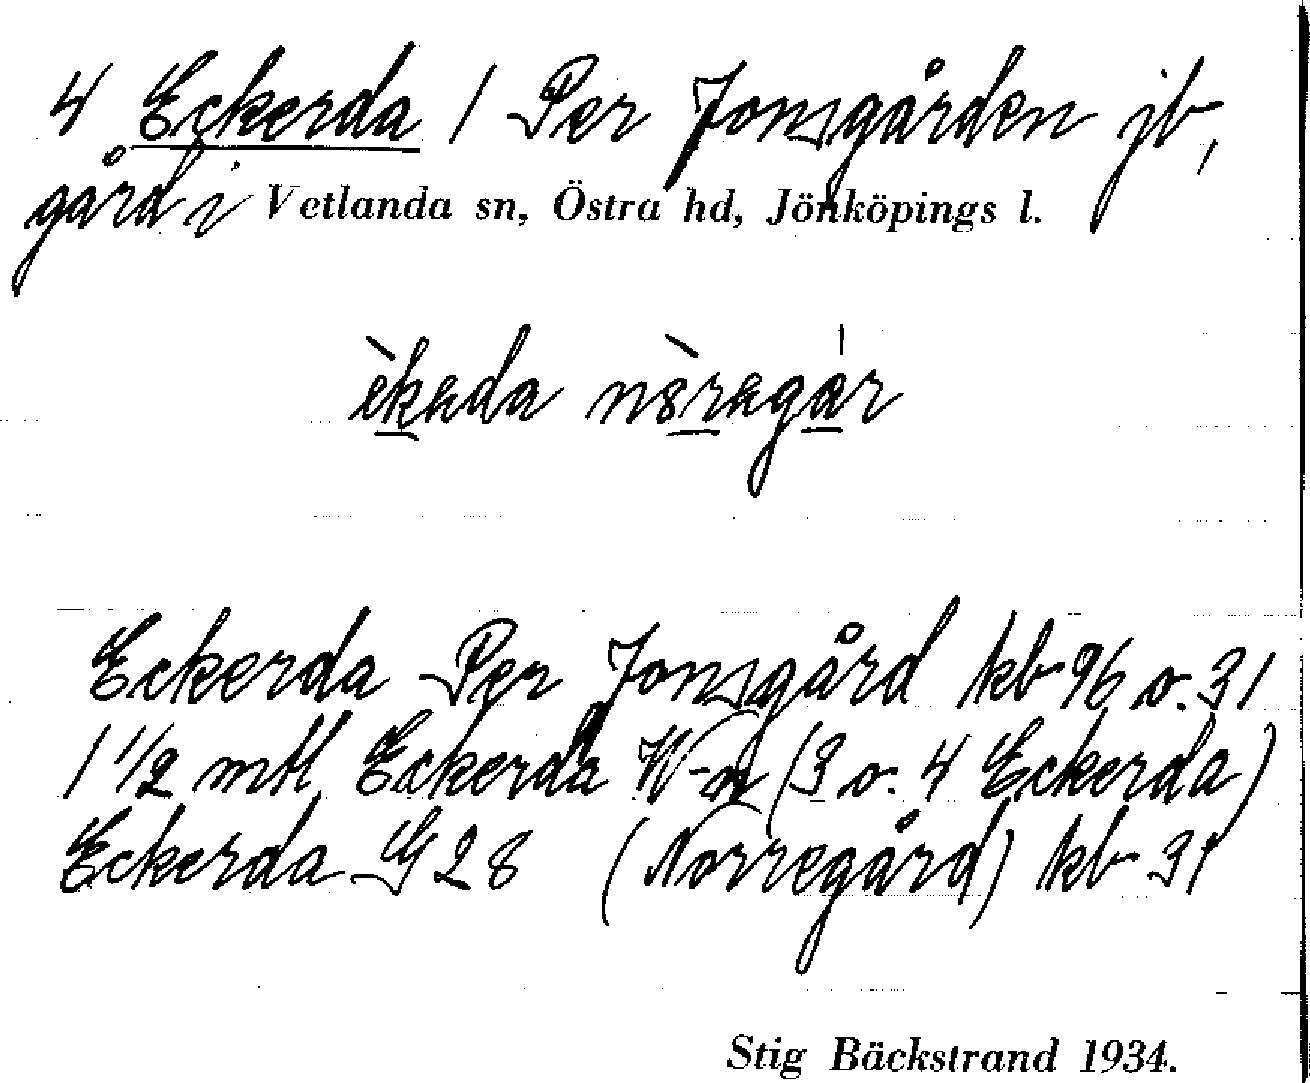 4 Eckerda 1 Per Jonsgården jb,
gård i Vetlanda sn, Östra hd, Jönköpings l.
èkəda nòregár
Eckerda Per Jonsgård kb 96 o. 31
1 1/2 mtl. Eckerda (3 o. 4 Eckerda)
Eckerda G 28 (Norregård) kb 31
Stig Bäckstrand 1934.